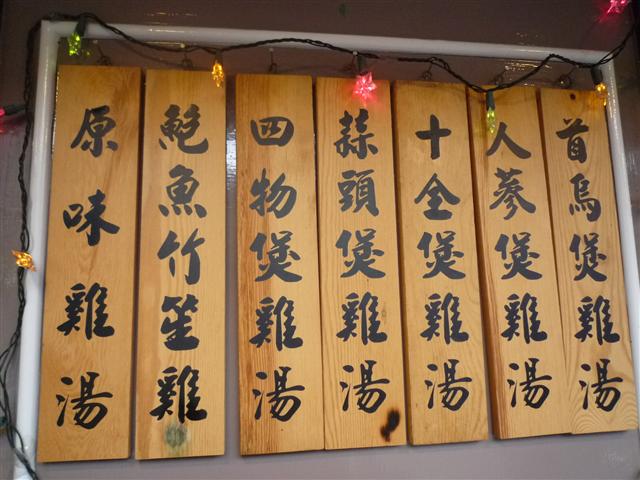 首烏煲雞湯
人蔘煲雞湯
十全煲雞湯
蒜頭煲雞湯
四物煲雞湯
鮑魚竹笙雞
原味雞湯